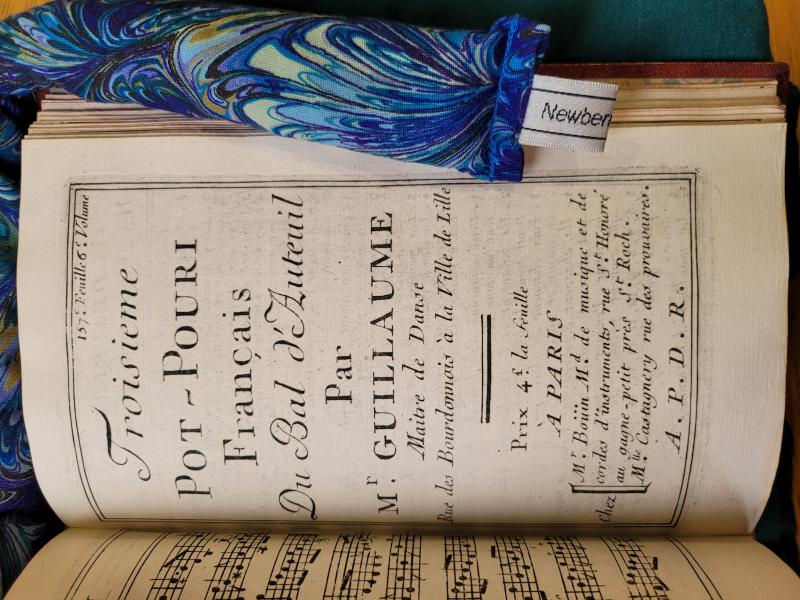 Newber
157.e Feuille 6.e Volume
Troisieme
POT-POURI
Français
Du Bal d'Auteuil
Par
M.r GUILLAUME
Maitre de Danse
Rue des Bourdonnois à la Ville de Lille
Prix 4.s la feuille
À PARIS
Chez
M.r Bouin M.d de musique et de
cordes d'instruments, rue S.t Honoré
au gagne-petit près S.t Roch.
M.lle Castagnery rue des prouvaires.
A. P. D. R.